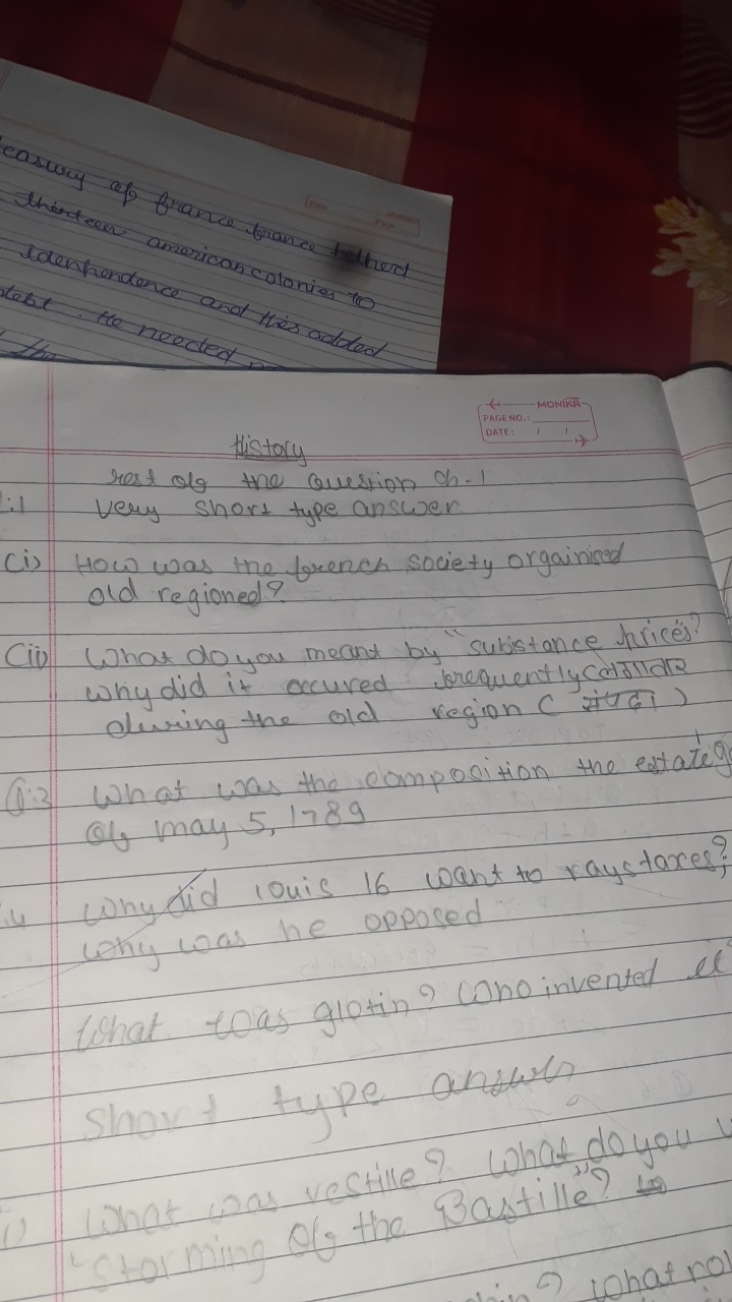 easury of france france helped
thirteen american colonies to
idenpendence and this added
debt. He needed
MONIKA
PAGE NO.:
DATE: / /
History
rest of the Question ch-1
very short type answer
(i) How was the french society orgainised
old regioned?
(ii) What do you meant by "substance prices?
why did it occured frequently
during the old region ( संपदा )
Q:3 What was the composition the estate g
of may 5, 1789
why did louis 16 want to rays taxes?
why was he opposed
What was glotin? who invented it
Short type answer
i) What was vestille? What do you
"Storming of the Bastille"? to
what no